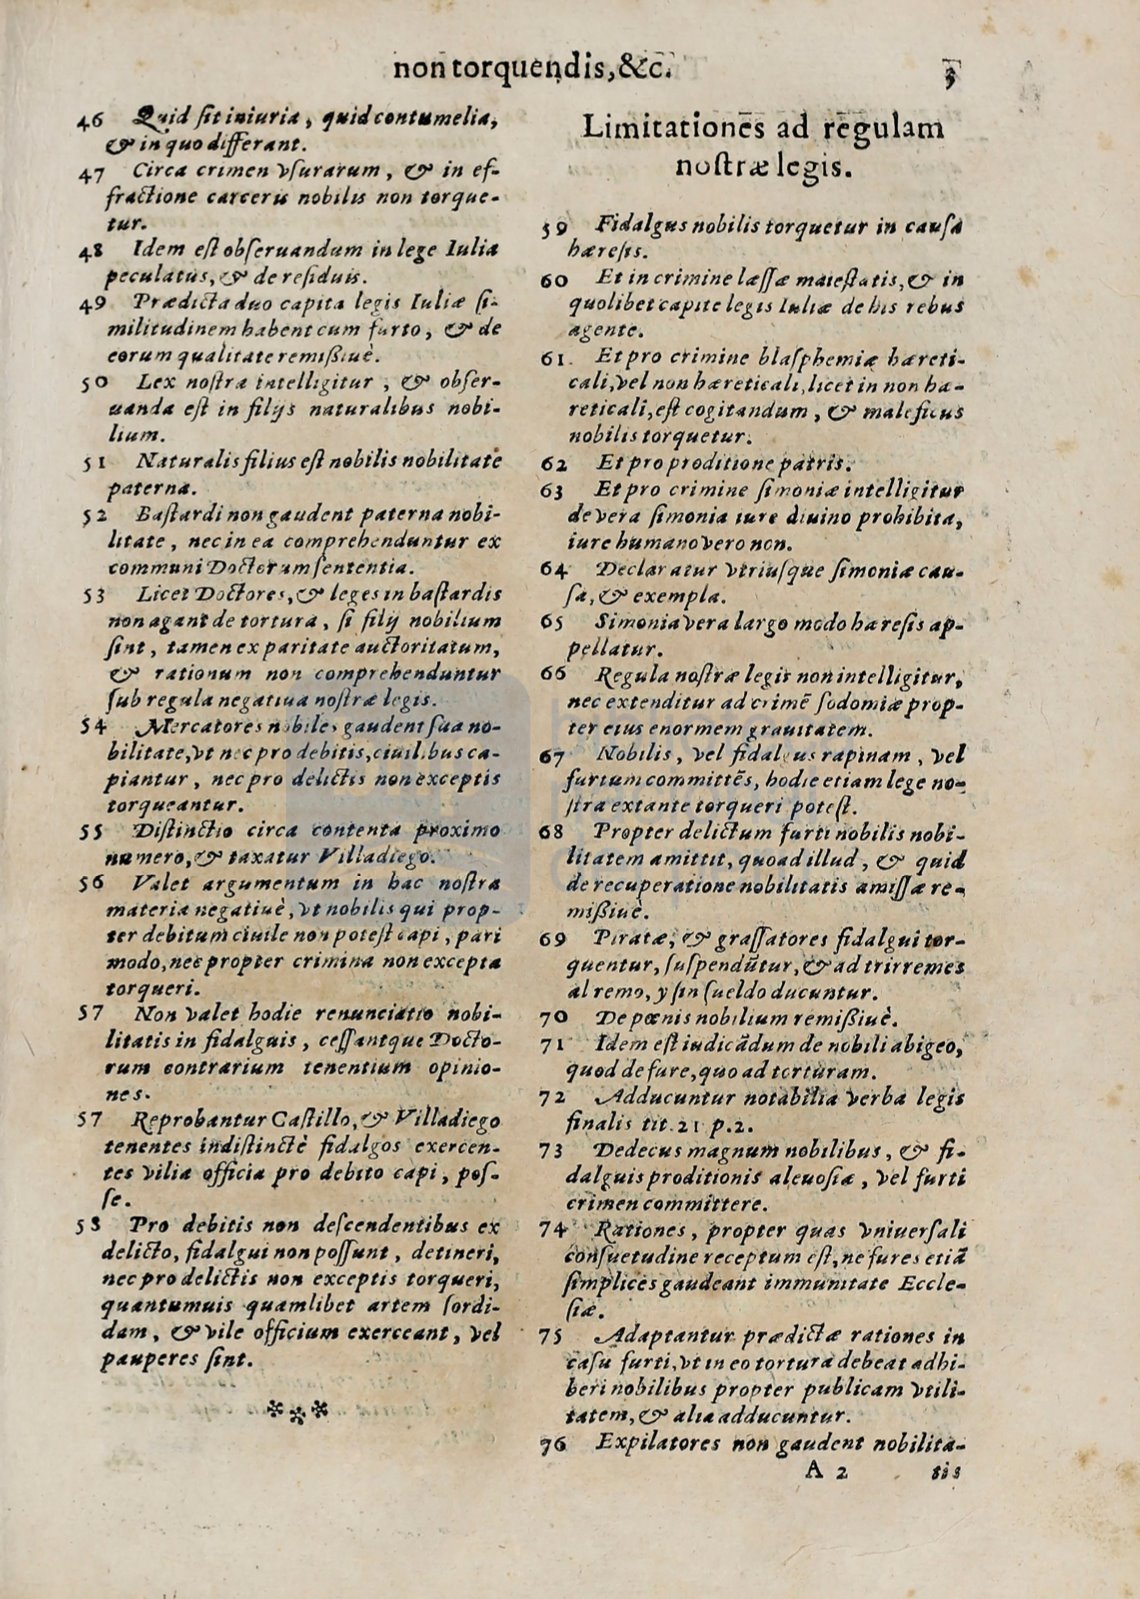 non torquendis, &c. 3
46 Quid sit iniuria, quid contumelia,
& in quo differant.
47 Circa crimen vsurarum, & in ef-
fractione carceris nobilis non torque-
tur.
48 Idem est obseruandum in lege Iulia
peculatus, & de residuis.
49 Prædicta duo capita legis Iuliæ si-
militudinem habent cum furto, & de
eorum qualitate remißiuè.
50 Lex nostra intelligitur, & obser-
uanda est in filijs naturalibus nobi-
lium.
51 Naturalis filius est nobilis nobilitate
paterna.
52 Bastardi non gaudent paterna nobi-
litate, nec in ea comprehenduntur ex
communi Doctorum sententia.
53 Licet Doctores, & leges in bastardis
non agant de tortura, si filij nobilium
sint, tamen ex paritate auctoritatum,
& rationum non comprehenduntur
sub regula negatiua nostræ legis.
54 Mercatores nobiles gaudent sua no-
bilitate, vt nec pro debitis, ciuilibus ca-
piantur, nec pro delictis non exceptis
torqueantur.
55 Distinctio circa contenta proximo
numero, & taxatur Villadiego.
56 Valet argumentum in hac nostra
materia negatiuè, vt nobilis qui prop-
ter debitum ciuile non potest capi, pari
modo, nec propter crimina non excepta
torqueri.
57 Non valet hodie renunciatio nobi-
litatis in fidalguis, cessantque Docto-
rum contrarium tenentium opinio-
nes.
57 Reprobantur Castillo, & Villadiego
tenentes indistinctè fidalgos exercen-
tes vilia officia pro debito capi, pos-
se.
58 Pro debitis non descendentibus ex
delicto, fidalgui non possunt, detineri,
nec pro delictis non exceptis torqueri,
quantumuis quamlibet artem sordi-
dam, & vile officium exerceant, vel
pauperes sint.
***
Limitationēs ad rēgulam
nostræ legis.
59 Fidalgus nobilis torquetur in causa
hæresis.
60 Et in crimine læssæ maiestatis, & in
quolibet capite legis Iuliæ de his rebus
agente.
61 Et pro crimine blasphemiæ hæreti-
cali, vel non hæreticali, licet in non hæ-
reticali, est cogitandum, & maleficus
nobilis torquetur.
62 Et pro proditione patris.
63 Et pro crimine simoniæ intelligitur
de vera simonia iure diuino prohibita,
iure humano vero non.
64 Declaratur vtriusque simoniæ cau-
sa, & exempla.
65 Simonia vera largo modo hæresis ap-
pellatur.
66 Regula nostræ legis non intelligitur,
nec extenditur ad crimē sodomiæ prop-
ter eius enormem grauitatem.
67 Nobilis, vel fidalgus rapinam, vel
furtum committēs, hodie etiam lege no-
stra extante torqueri potest.
68 Propter delictum furti nobilis nobi-
litatem amittit, quoad illud, & quid
de recuperatione nobilitatis amissæ re-
mißiuè.
69 Piratæ, & grassatores fidalgui tor-
quentur, suspendūtur, & ad trirremes
al remo, y sin sueldo ducuntur.
70 De pœnis nobilium remißiuè.
71 Idem est iudicādum de nobili abigeo,
quod de fure, quo ad torturam.
72 Adducuntur notabilia verba legis
finalis tit. 21 p. 2.
73 Dedecus magnum nobilibus, & fi-
dalguis proditionis aleuosiæ, vel furti
crimen committere.
74 Rationes, propter quas vniuersali
consuetudine receptum est, ne fures etiā
simplices gaudeant immunitate Eccle-
siæ.
75 Adaptantur prædictæ rationes in
casu furti, vt in eo tortura debeat adhi-
beri nobilibus propter publicam vtili-
tatem, & alia adducuntur.
76 Expilatores non gaudent nobilita-
A 2 tis